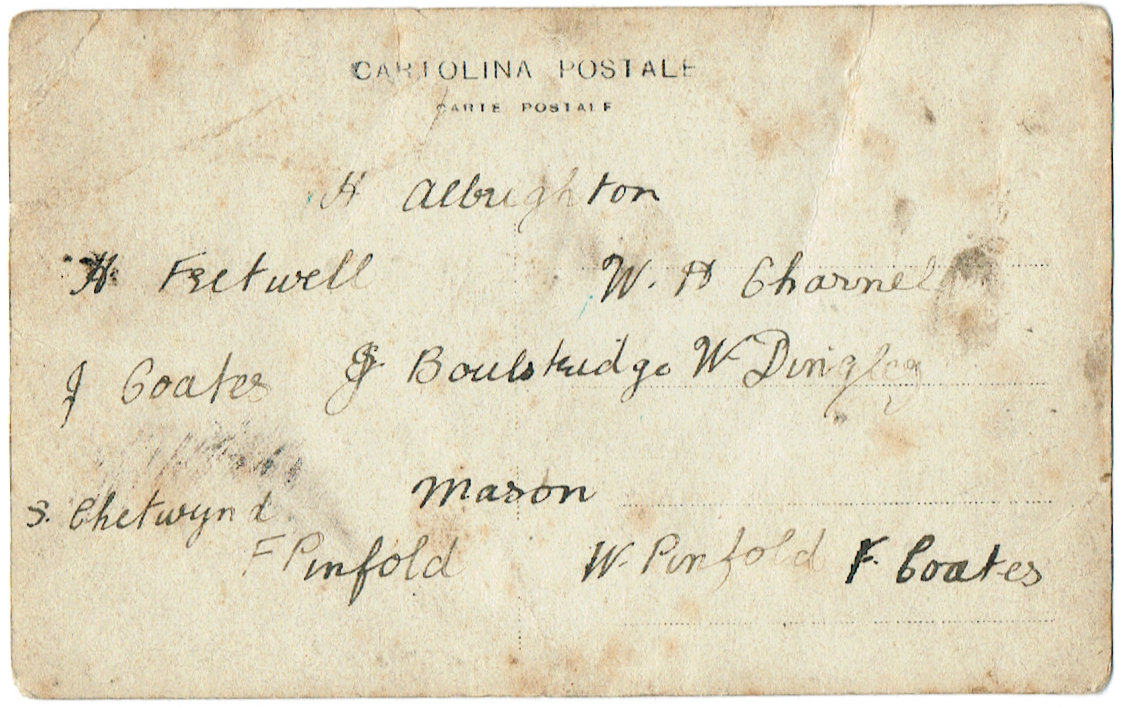 CARTOLINA POSTALE
CARTE POSTALE
H Albrighton
H. Fretwell W. H Charnel
J Coates J Boulstridge W Dingley
Mason
S. Chetwynd
F Pinfold W. Pinfold F. Coates